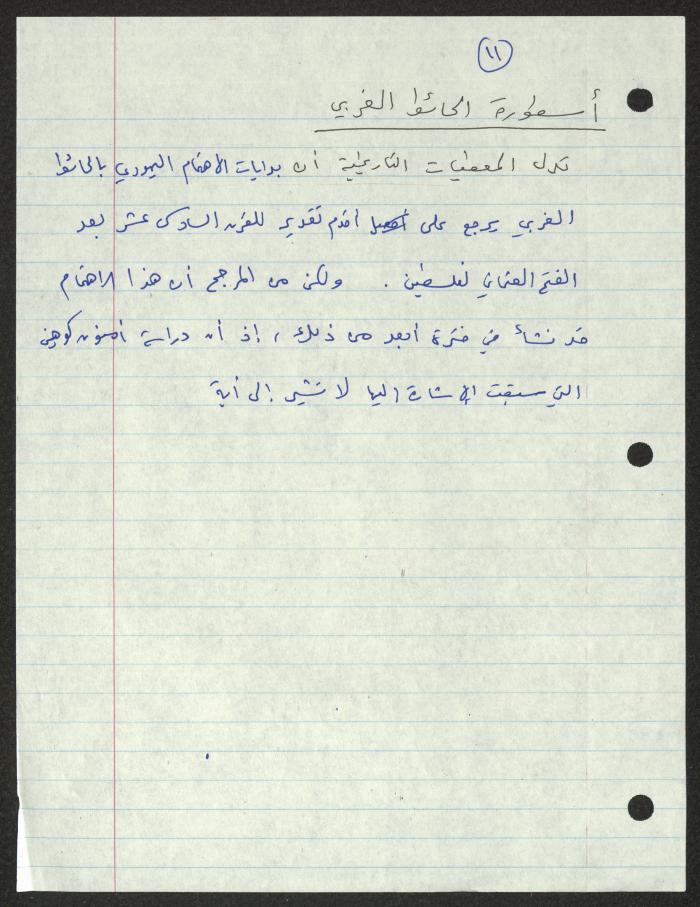 ١١
أسطورة الحائط الغربي
تدل المعطيات التاريخية أن بدايات الاهتمام اليهودي بالحائط
الغربي يرجع على أقدم تقدير للقرن السادس عشر بعد
الفتح العثماني لفلسطين . ولكن من المرجح أن هذا الاهتمام
قد نشأ في فترة أبعد من ذلك ، إذ أن دراسة أمنون كوهين
التي سبقت الإشارة اليها لا تشير إلى أية